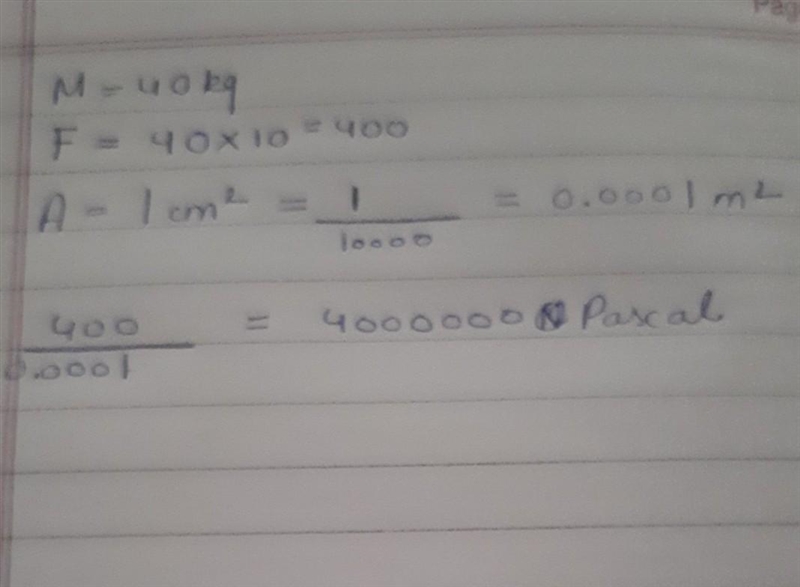 Pag
M - 40 kg
F = 40 x 10 = 400
A - 1 cm² = 1/10000 = 0.0001 m²
400/0.0001 = 4000000 Pascal